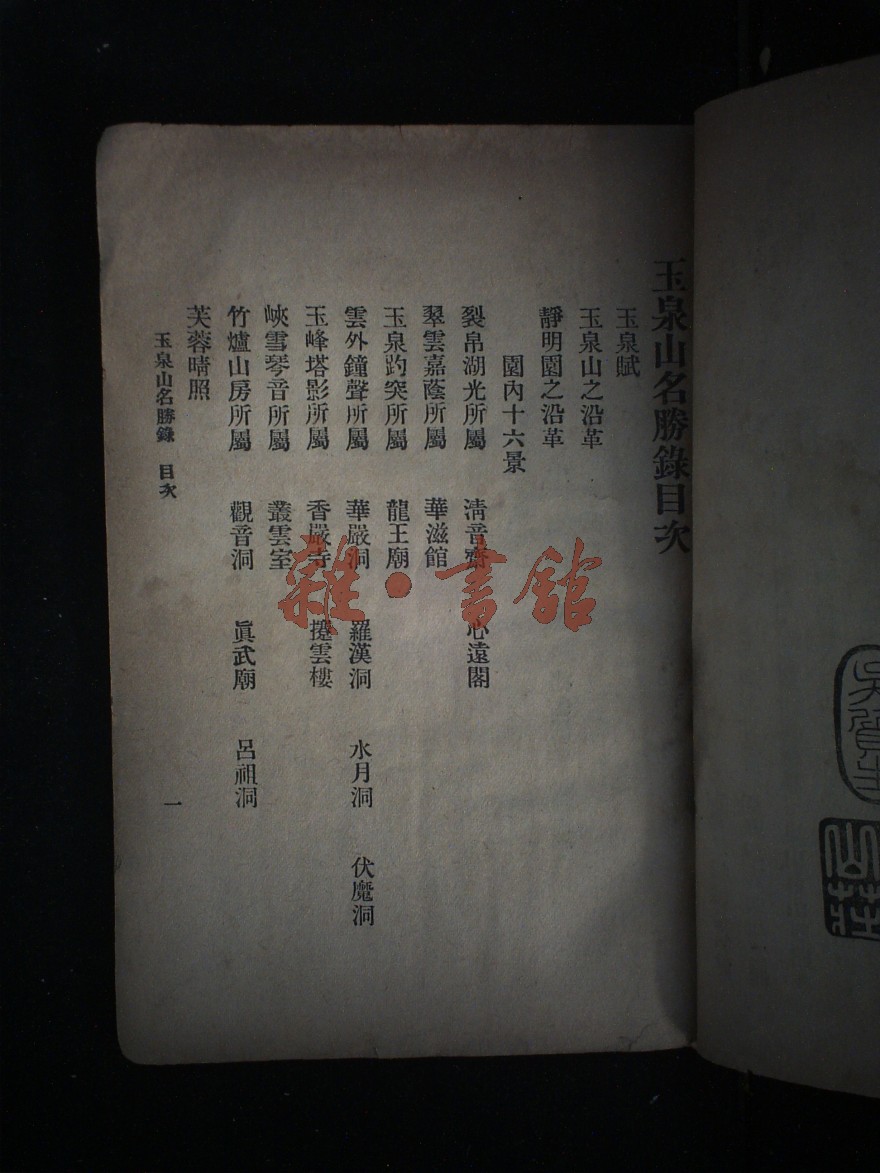 玉泉山名勝錄目次
玉泉賦
玉泉山之沿革
靜明園之沿革
園內十六景
裂帛湖光所屬 清音齋 心遠閣
翠雲嘉蔭所屬 華滋館
玉泉趵突所屬 龍王廟
雲外鐘聲所屬 華嚴洞 羅漢洞 水月洞 伏魔洞
玉峰塔影所屬 香嚴寺 雲樓
峽雪琴音所屬 叢雲室
竹爐山房所屬 觀音洞 眞武廟 呂祖洞
芙蓉晴照
玉泉山名勝錄 目次
一
雜·書館